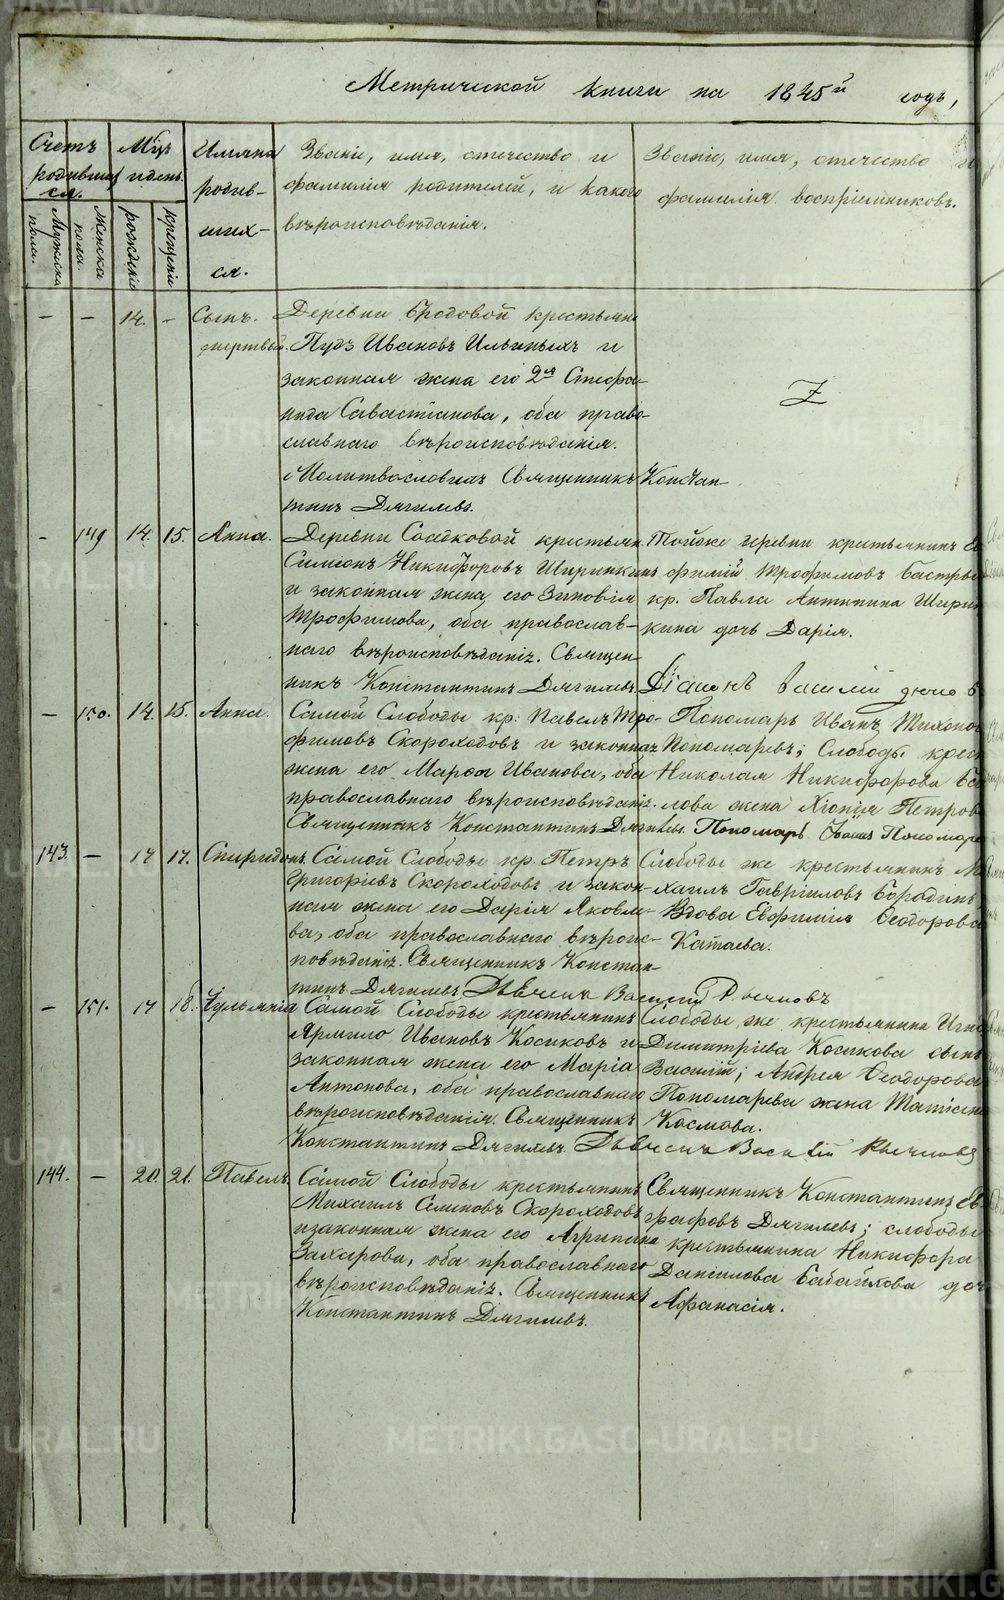 Метрической книги на 1845й годъ,
Счетъ родившихся.
Мужска пола.
Женска пола.
Мцъ и день.
рожденiе
крещенiе
Имяна родившихся.
Званiе, имя, отечество и
фамилiя родителей, и какого
вѣроисповѣданiя.
Званiе, имя, отечество и
фамилiя воспрiемниковъ.
– – 14. – Сынъ мертвый.
Деревни Бродовой крестьянинъ
Пудъ Ивановъ Ильиныхъ и
законная жена его 2я Стефа-
нида Савастiанова, оба право-
славнаго вѣроисповѣданiя.
Молитвословилъ Священникъ Констан-
тинъ Дягилевъ.
– 149 14. 15. Анна.
Деревни Соковой крестьян.
Симiонъ Никифоровъ Ширинкинъ
и законная жена его Зиновiя
Трофимова, оба православ-
наго вѣроисповѣданiя. Священ-
никъ Константинъ Дягилевъ.
Тойже деревни крестьянинъ Ев
фимiй Трофимовъ
кр. Павла Антипина Шири
кина дочь Дарiя.
Дiаконъ Василiй
– 150. 14. 15. Анна.
Самой Слободы кр. Павелъ Тро-
фимовъ Скороходовъ и законная
жена его Марѳа Иванова, оба
православнаго вѣроисповѣданiя.
Священникъ Константинъ Дягилевъ.
Пономарь Иванъ Тихонов
Пономаревъ; Слободы крест
Николая Никифорова
лова жена Хiонiя Петрова
Пономарь Иванъ Пономаре
143. – 17 17. Спиридонъ.
Самой Слободы кр. Петръ
Григорiевъ Скороходовъ и закон-
ная жена его Дарiя Яковле-
ва, оба православнаго вѣроис-
повѣданiя. Священникъ Констан-
тинъ Дягилевъ. Дьячекъ Василiй Рычковъ
Слободы же крестьянинъ Ми
хаилъ Гаврiиловъ Бородинъ
Вдова Евфимiя Ѳеодорова
Катаева.
– 151. 17 18. Iулiянiя
Самой Слободы крестьянинъ
Армило Ивановъ Косиковъ и
законная жена его Марiа
Антонова, оба православнаго
вѣроисповѣданiя. Священникъ
Константинъ Дягилевъ. Дьячекъ Василiй Рычковъ
Слободы же крестьянина Игна
Димитрiева Косикова сынъ
Василiй; Андрея Ѳеодорова
Пономарева жена Татiана
Космова.
144. – 20. 21. Павелъ.
Самой Слободы крестьянинъ
Михаилъ Семиновъ Скороходовъ
и законная жена его Агрипина
Захарова, оба православнаго
вѣроисповѣданiя. Священникъ
Константинъ Дягилевъ.
Священникъ Константинъ Ев
графовъ Дягилевъ; слободы
крестьянина Никифора
Данiилова Бабайлова доч
Афанасiя.
METRIKI.GASO-URAL.RU